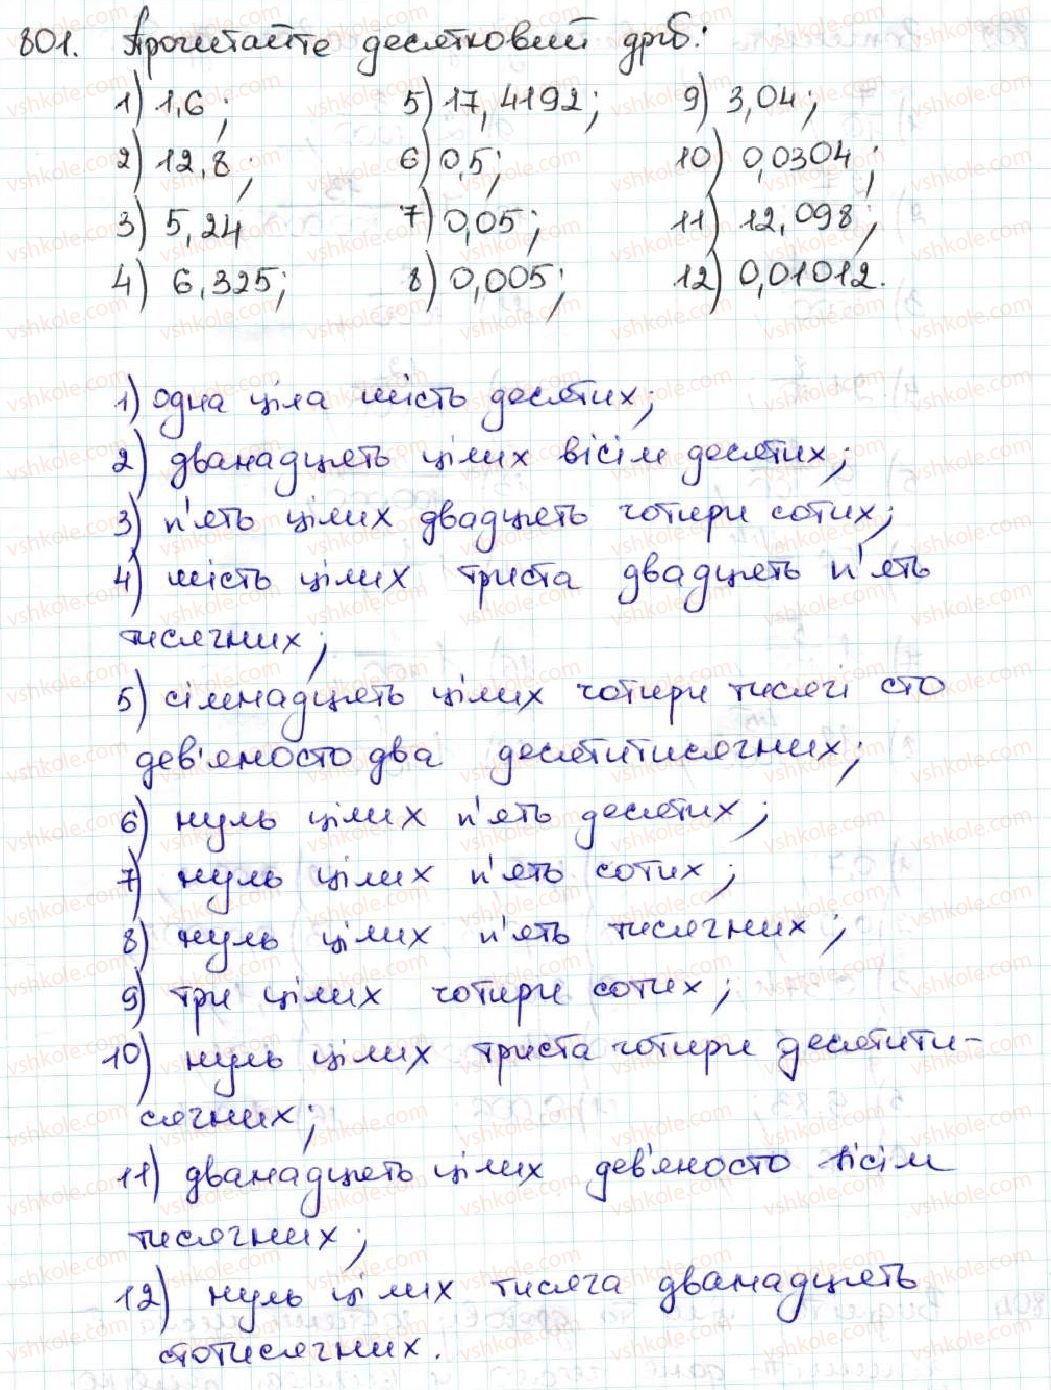 801. Прочитайте десятковий дріб:
1) 1,6; 5) 17,4192; 9) 3,04;
2) 12,8; 6) 0,5; 10) 0,0304;
3) 5,24 7) 0,05; 11) 12,098;
4) 6,325; 8) 0,005; 12) 0,01012.
1) одна ціла шість десятих;
2) дванадцять цілих вісім десятих;
3) п'ять цілих двадцять чотири сотих;
4) шість цілих триста двадцять п'ять
тисячних;
5) сімнадцять цілих чотири тисячі сто
дев'яносто два десятитисячних;
6) нуль цілих п'ять десятих;
7) нуль цілих п'ять сотих;
8) нуль цілих п'ять тисячних;
9) три цілих чотири сотих;
10) нуль цілих триста чотири десятити-
сячних;
11) дванадцять цілих дев'яносто вісім
тисячних;
12) нуль цілих тисяча дванадцять
стотисячних.